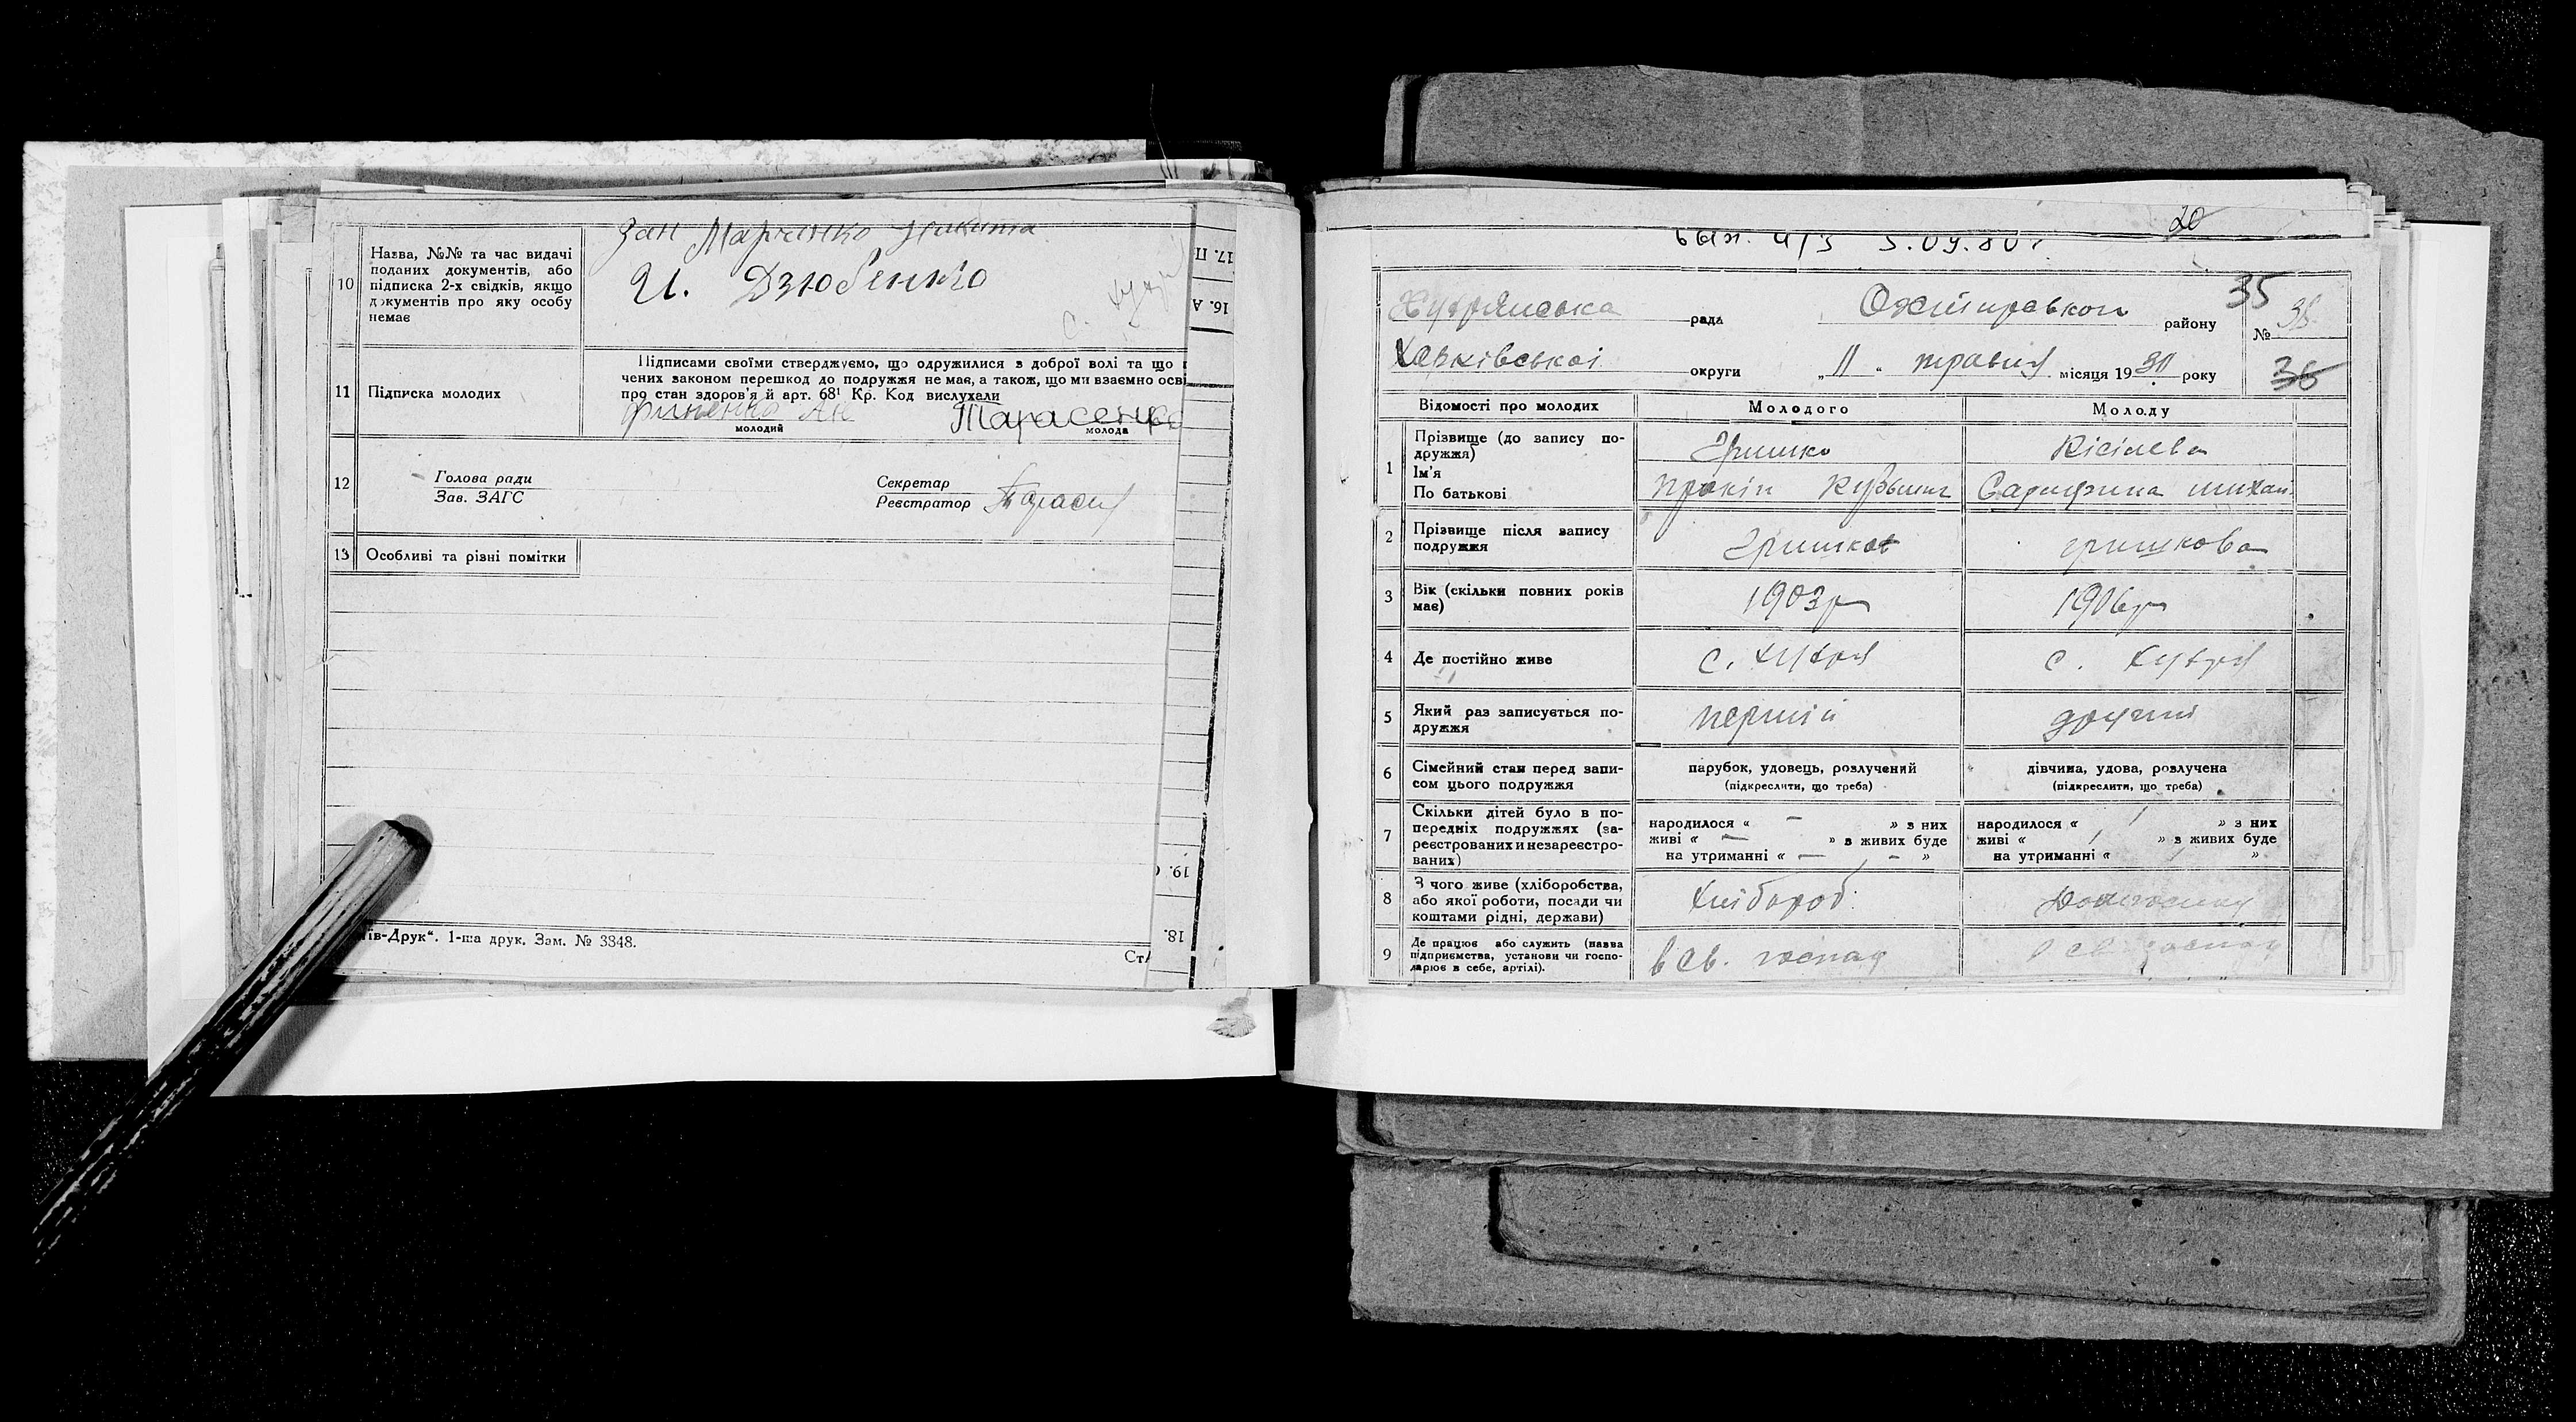 Марченко Никита
И. Дзюбенко
10
Назва, №№ та час видачі
поданих документів, або
підписка 2-х свідків, якщо
документів про яку особу
немає
17. П
16. А
с.
11
Підписка молодих
Підписами своїми стверджуємо, що одружилися з доброї волі та що
чених законом перешкод до подружжя не має, а також, що ми взаємно осві
про стан здоров'я й арт. 68¹ Кр. Код вислухали
Тарасенко
молодий
молода
12
Голова ради
Зав. ЗАГС
Секретар
Реєстратор
13
Особливі та різні помітки
19.
18.
їв-Друк“. 1-ша друк. Зам. № 3348.
Ст
20
рада
Охтирського
району
35
№
38
Харківської
округи
„ 11 “ травня місяця 1930 року
36
Відомості про молодих
Молодого
Молоду
1
Прізвище (до запису по-
дружжя)
Ім'я
По батькові
Гришко
Кісілева
Прокіп Кузьмич
2
Прізвище після запису
подружжя
Гришков
гришкова
3
Вік (скільки повних років
має)
1903р
1906р
4
Де постійно живе
с. Хухря
с. Хухря
5
Який раз записується по-
дружжя
перший
другий
6
Сімейний стан перед запи-
сом цього подружжя
парубок, удовець, розлучений
(підкреслити, що треба)
дівчина, удова, розлучена
(підкреслити, що треба)
7
Скільки дітей було в по-
передніх подружжях (за-
реєстрованих и незареєстро-
ваних)
народилося « — » з них
живі « — » з живих буде
на утриманні « — »
народилося « / » з них
живі « / » з живих буде
на утриманні « »
8
З чого живе (хліборобства,
або якої роботи, посади чи
коштами рідні, держави)
Хлібороб
9
Де працює або служить (назва
підприємства, установи чи госпо-
дарює в себе, артілі).
в св. господ